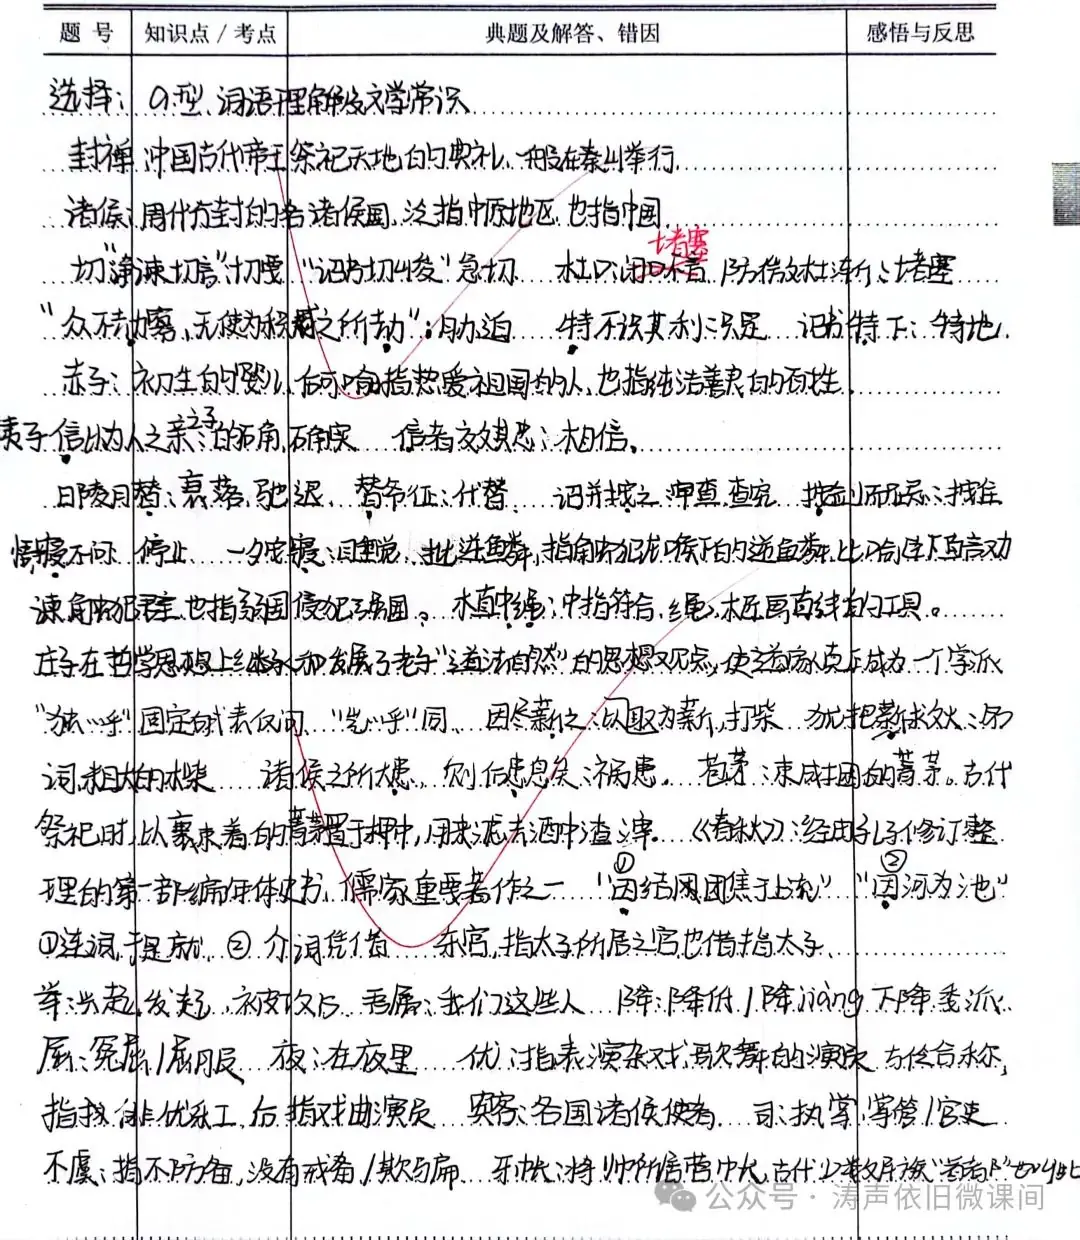 题 号 知识点／考点 典题及解答、错因 感悟与反思
选择：Q型、词语理解及文学常识
封禅 中国古代帝王祭祀天地的典礼、一般在泰山举行
诸侯：周代方封的各诸侯国、泛指中原地区、也指中国
堵塞
切"谏切言"切要 急切 杜口：闭口不言 堵塞
"众不劫 无使为积威之所劫"：胁迫 特不识其利：只是 特下：特地
赤子：初生的婴儿、后 指热爱祖国的人、也指纯洁善良的百性
信以为人之亲之子 的 确、确实 信者效其忠：相信、
日陵月替：衰落、弛迟、替爷征：代替
寝不问 停止 一夕 寝：睡觉、批逆鳞、指触犯龙喉下的逆鳞、比喻臣下直言劝
谏触犯君主、也指弱国侵犯强国。木直中绳：中指符合、绳、木匠画直线的工具。
庄子在哲学思想上继承和发展了老子"道法自然"的思想观点，使道家真正成为一个学派
"独……乎"固定句式表反问、"岂……乎"同、 薪 以 取为薪、打柴 犹把薪救火：名
词、粗大的木柴 诸侯之所大患、则 患 矣：祸患。 苞茅：束成捆的菁茅。古代
祭祀时，以裹束着的菁茅置于押中，用来滤去酒中渣滓。《春秋》：经由孔子修订整
理的第一部编年体史书、儒家重要著作之一 "因 于上流" "因河为池"
① ②
①连词、于是就、② 介词凭借 东宫，指太子所居之宫也借指太子、
举：兴起、发起、被攻占 吾属：我们这些人 降：降低／降jiàng 下降 委派
屈：冤屈／屈服 夜：在夜里 优：指表演杂戏歌舞的演员 与伶合称，
指 俳优乐工、后指戏曲演员 宾客：各国诸侯使者 司：执掌、掌管／官吏
不虞：指不防备，没有戒备／欺与 牙帐：将帅所居营中大、古代
公众号·涛声依旧微课间